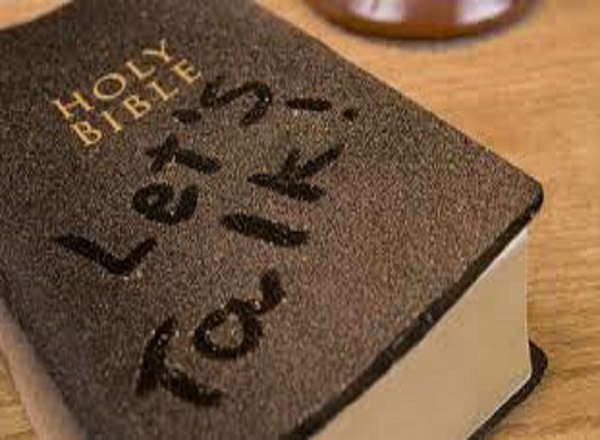 HOLY
BIBLE
Let's
Talk!